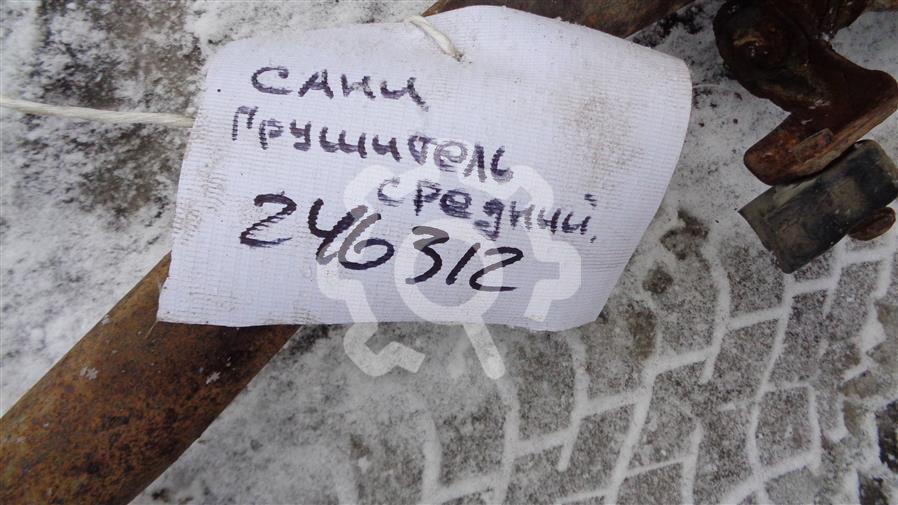 сани
грушитель
средний.
246312